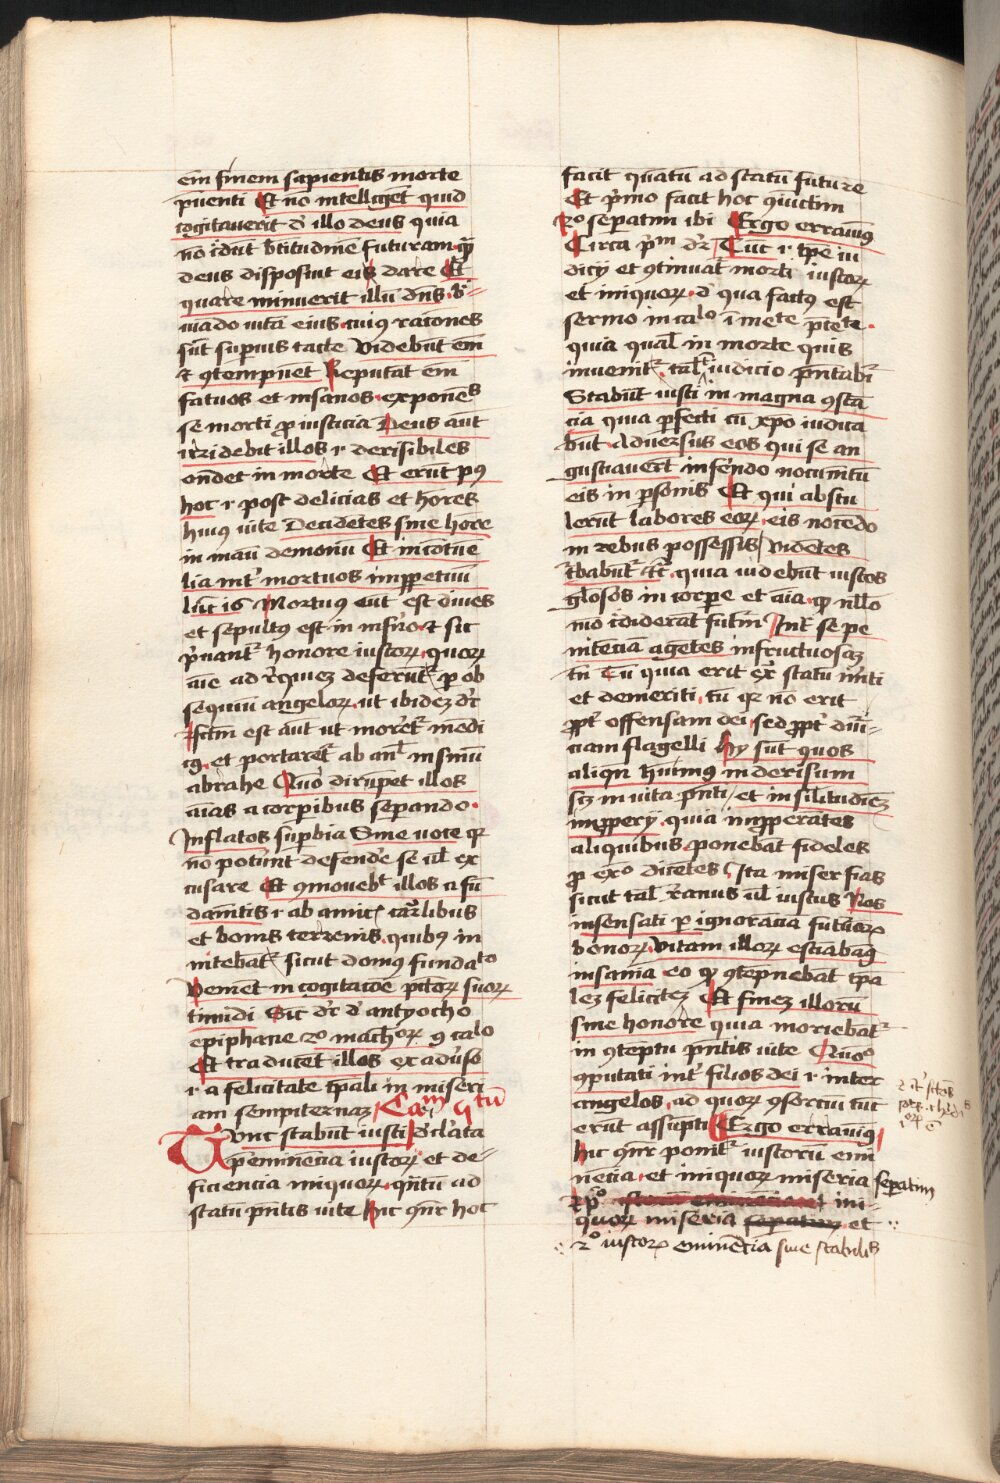 em finem sapientis morte
pũenti Et nõ intelliget quid
cogitaverit d̕ illo deus quia
nõ c̃dũt btitudinẽ futuram q̃
deus disposuit eis dare Et
quare minuerit illũ dñs
suado vitã eius cuius raciones
sũt supius tacte Videbũt em
et ꝯtempnet Reputãt em
fatuos et insanos exponẽs
se morti ꝓ iusticia Deus aũt
irridebit illos et derisibiles
ondet in morte Et erũt pꝰ
hoc et post delicias et hores
huiꝰ vite Decidẽtes sine hore
in manũ demonũ Et in cõtũe
lia int̕ mortuos imꝑpetuũ
luc 16 Mortuꝰ aut est dives
et sepultꝰ est in infñο et sic
p̃uant᷑ honore iustoꝝ quoꝝ
aĩe ad r̃quiez deferũt᷑ ꝓ ob
sequiũ angeloꝝ ut ibidez d̕r
fctm est aut ut moret᷑ mẽdi
cꝰ et portaret᷑ ab anl̕ in sinũ
abrahe Quõ dirũpet illos
aĩas a corpibus sepando
Inflatos supbia Sine uoce qꝛ
nõ poterũt defendẽ se ul̕ ex
cusare Et ꝯmouebt illos a fũ
damẽtis et ab amicꝭ carl̕ibus
et bonis terrenis quibꝰ in
nitebãt᷑ sicut domꝰ fundato
Venient in cogitacõe pctoꝝ suoꝝ
timidi Sic d̕r d̕ antyocho
epiphane 2o machoꝝ 9 calo
Et traducet illos ex adũso
et a felicitate tpali in miseri
am sempiternaz Cam 5tũ
Tunc stabũt iusti Declata
p̃eminẽcia iustoꝝ et de
ficiencia iniquoꝝ q̃ntũ ad
statũ pñtis vite hic ꝯñr hoc
facit quãtũ ad statũ future
Et p̃mo facit hoc ꝯiũctim
2o sepatim ibi Ergo errauimꝰ
Circa pm d̕r Tũc i tpe iu
dicii et ꝯtinuat morti iustoꝝ
et iniquoꝝ d̕ qua factꝰ est
sermo in calo ĩmete p̃cte
quia qual̕ in morte quis
inuenit᷑ tal̕ in iudicio p̃ntabĩ
Stabũt iusti in magna ꝯstã
cia quia ꝑfecti cũ xpo iudica
bũt Aduersus eos qui se an
gustiauerũt inferẽdo nocumẽtũ
eis in psonis Et qui abstu
lerũt labores eoꝝ eis nocẽdo
in rebus possessis Videntes
t̃babũt᷑ quia uidebũt iustos
glõsos in corpe et aĩa qꝫ nllo
mõ c̃diderãt futm Int̕ se pe
nitẽciã agẽtes infructuosaz
tñ Tũ quia erit ext̃ statũ m̃ti
et demeriti tũ qꝛ nõ erit
ꝓpt̕ offensam dei sed ꝓpt̕ diui
nam flagelli hy sũt quos
aliqñ huimꝰ in derisum
scꝫ in vita pñti et in silitudiẽz
imꝓpery quia imꝓperãtes
aliquibus ponebãt fideles
ꝓ exo dicẽtes Ita miser fias
sicut tal̕ xanus ul̕ iustus Nos
insensati ꝓ ignorãcia futuroꝝ
bonoꝝ Vitam illoꝝ estiabaꝰ
insaniã eo qꝫ ꝯtẽpnebãt tpa
lez felicitẽz Et finez illorũ
sine honore quia moriebãt᷑
in ꝯteptu pñtis vite Quõ
ꝯputati int̕ filios dei et inter
angelos ad quoꝝ ꝯsorciũ tũc
erũt assũpti Ergo errauimꝰ
hic ꝯñr ponit᷑ iustorũ emi
nẽcia et iniquoꝝ miseria sepatim
Et po ini
quoꝝ miseria et
2o iustoꝝ eminẽcia sine stabilis